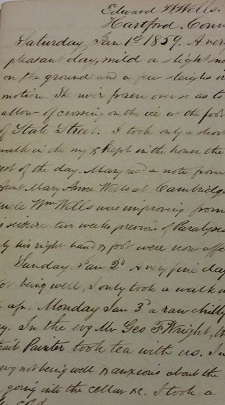 Edward W Wells.
Hartford, Conn
Saturday Jan 1st 1859. A very
pleasant day, mild a slight snow
on the ground and a few sleighs in
motion. The river frozen over so as to
allow of crossing on the ice at the foot
of State Street. I took only a short
walk in the mg & kept in the house the
rest of the day. Mary rec'd a note from
Aunt Mary Anne Wells at Cambridge
Uncle Wm Wells was improving from
seizure two weeks previous of Paralysis
only his right hand & foot were now
Sunday Jan 2d A very fine day
not being well, I only took a walk
Monday Jan 3d a raw chilly
In the evg Mr Geo F Wright,
Painter took tea with us.
evg not being well & anxious about the
going into the cellar &c. I took a
cold